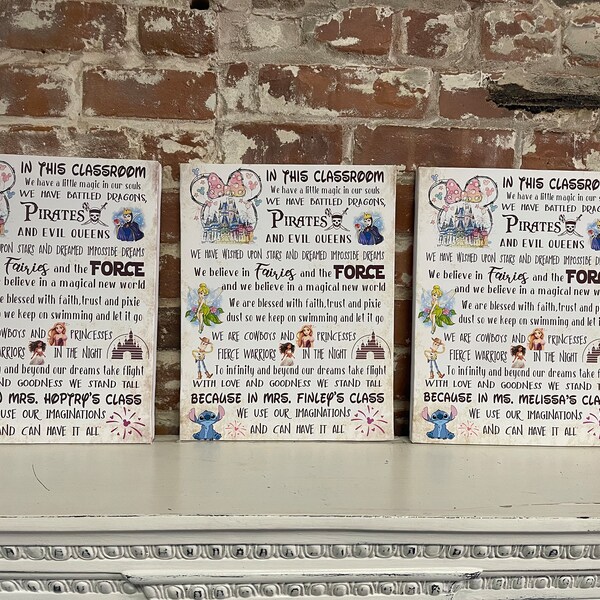 IN THIS CLASSROOM
We have a little magic in our souls
WE HAVE BATTLED DRAGONS,
PIRATES
AND EVIL QUEENS
UPON STARS AND DREAMED IMPOSSIBE DREAMS
Fairies and the FORCE
and we believe in a magical new world
are blessed with faith,trust and pixie
so we keep on swimming and let it go
COWBOYS AND PRINCESSES
WARRIORS IN THE NIGHT
and beyond our dreams take flight
AND GOODNESS WE STAND TALL
IN MRS. HOPTRY'S CLASS
USE OUR IMAGINATIONS
AND CAN HAVE IT ALL
IN THIS CLASSROOM
We have a little magic in our souls
WE HAVE BATTLED DRAGONS,
PIRATES
AND EVIL QUEENS
WE HAVE WISHED UPON STARS AND DREAMED IMPOSSIBE DREAMS
We believe in Fairies and the FORCE
and we believe in a magical new world
We are blessed with faith,trust and pixie
dust so we keep on swimming and let it go
WE ARE COWBOYS AND PRINCESSES
FIERCE WARRIORS IN THE NIGHT
To infinity and beyond our dreams take flight
WITH LOVE AND GOODNESS WE STAND TALL
BECAUSE IN MRS. FINLEY'S CLASS
WE USE OUR IMAGINATIONS
AND CAN HAVE IT ALL
IN THIS CLASSROOM
We have a little magic in our souls
WE HAVE BATTLED DRAGONS,
PIRATES
AND EVIL QUEENS
WE HAVE WISHED UPON STARS AND DREAMED IMPOSSIBE
We believe in Fairies and the
and we believe in a magical new world
We are blessed with faith,trust and
dust so we keep on swimming and let it
WE ARE COWBOYS AND PRINCESSES
FIERCE WARRIORS IN THE NIGHT
To infinity and beyond our dreams take
WITH LOVE AND GOODNESS WE STAND TALL
BECAUSE IN MS. MELISSA'S
WE USE OUR IMAGINATIONS
AND CAN HAVE IT ALL